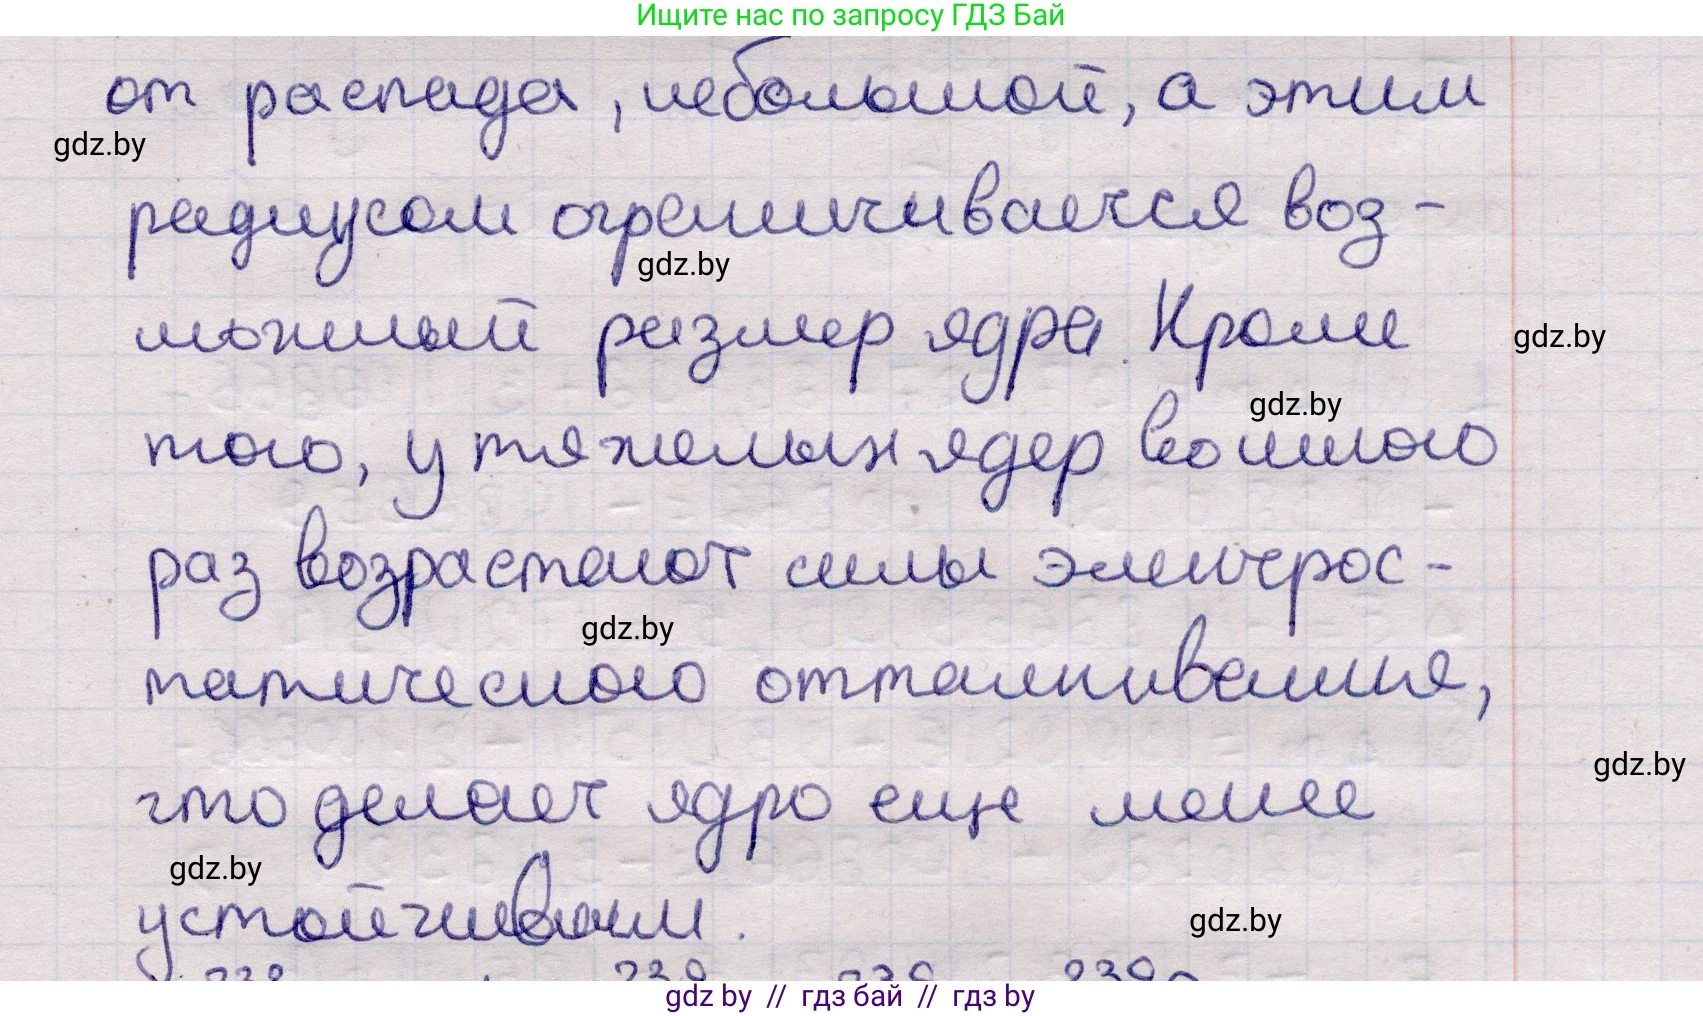 Ищите нас по запросу ГДЗ Бай
от распада, небольшой, а этим
gdz.by
радиусом ограничивается воз-
gdz.by
можный размер ядра. Кроме
gdz.by
gdz.by
того, у тяжелых ядер во много
раз возрастают силы электрос-
gdz.by
татического отталкивания,
gdz.by
что делает ядро еще менее
gdz.by
устойчивым.
gdz.by
gdz by // гдз бай // гдз by